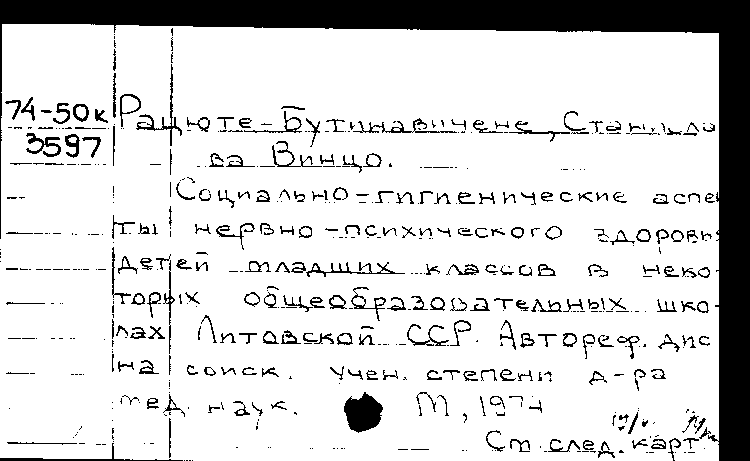 74-50к Рацюте-Бутинавичене, Станисла
3597 ва Винцо.
Социально-гигиенические аспек
ты нервно-психического здоровья
детей младших классов в неко-
торых общеобразовательных шко-
лах Литовской ССР. Автореф. дис
на соиск. учен. степени д-ра
мед. наук. М, 1974
См след. карт